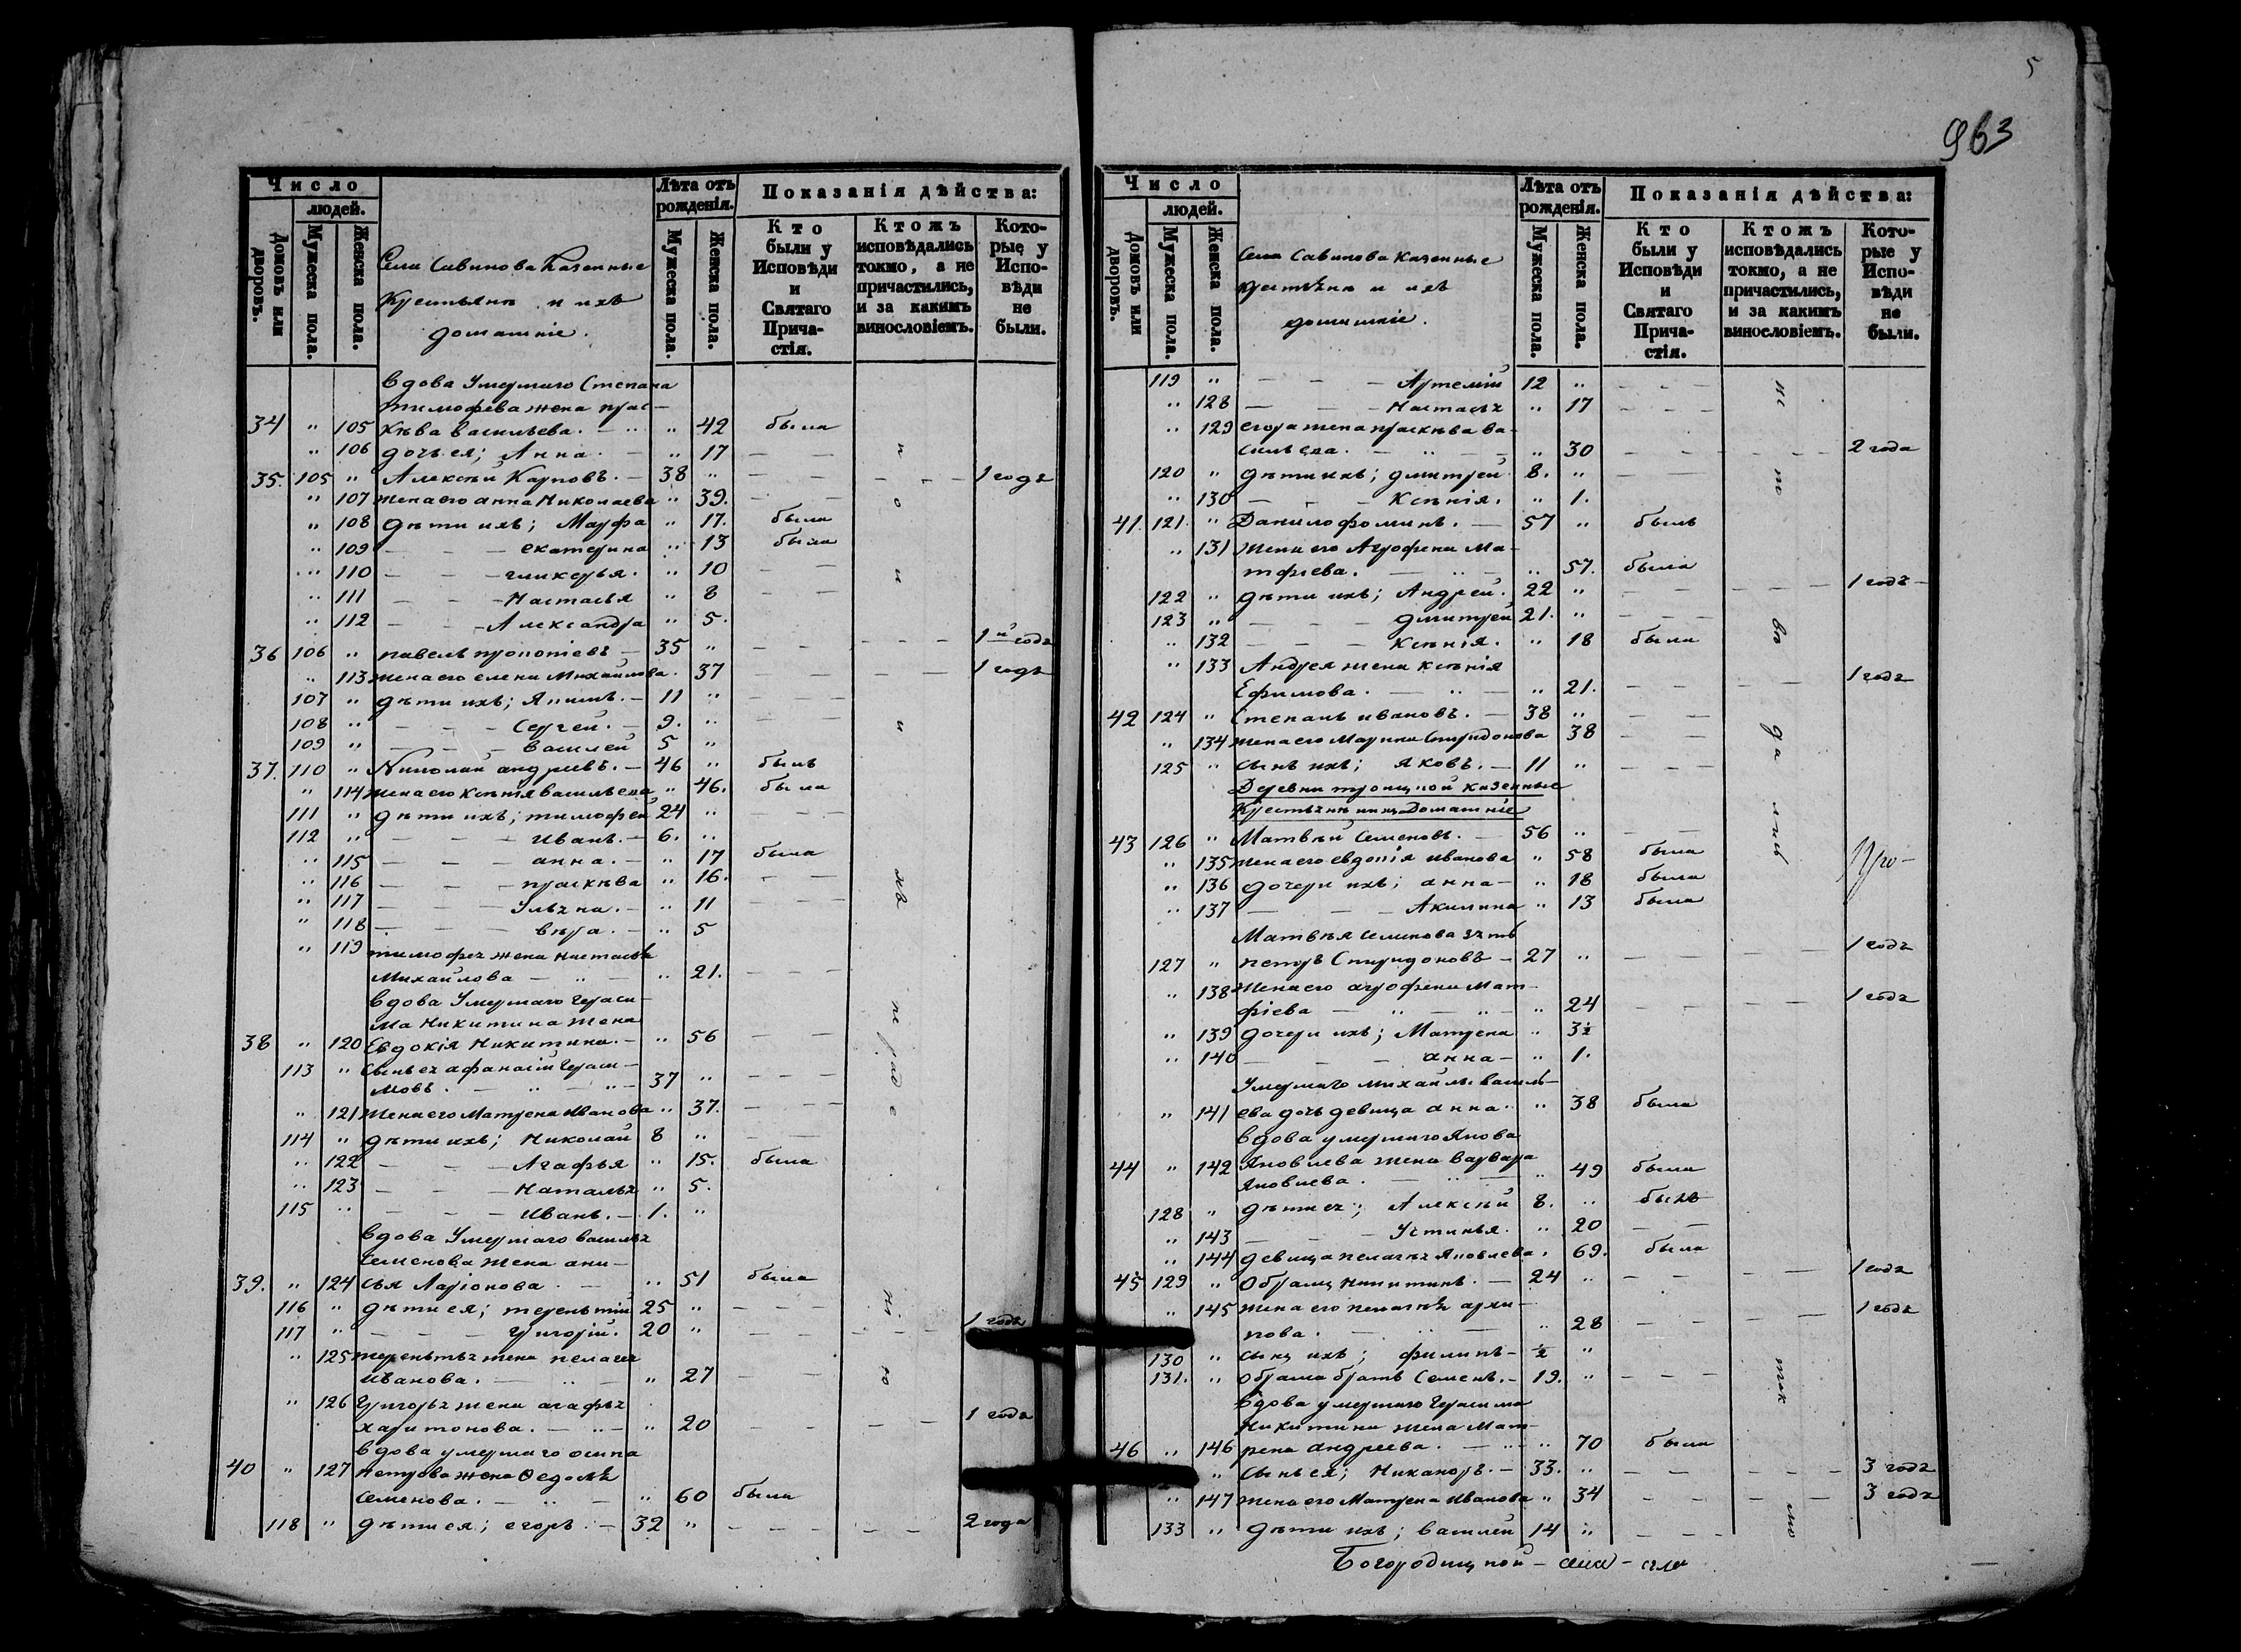 5
963
Число
людей.
Домовъ или дворовъ.
Мужеска пола.
Женска пола.
Села Савинова Казенные
Крестьяне и ихъ
домашніе.
Лѣта отъ рожденія.
Мужеска пола.
Женска пола.
Показанія дѣйства:
Кто были у Исповѣди и Святаго Причастія.
Ктожъ исповѣдались токмо, а не причастились, и за какимъ винословіемъ.
Которые у Исповѣди не были.
вдова Умершаго Степана
тимофева жена прас-
34 " 105 кѣва васильева. — " 42 была
" 106 дочь ея; Анна — " 17 — —
35. 105 " Алексѣй Карповъ. — 38 " — — 1 годъ
" 107 жена его анна Николаева " 39. — —
" 108 дѣти ихъ; Марфа " 17. была
" 109 — — екатерина " 13 была
" 110 — — гликерья. " 10 — —
" 111 — — Настасья " 8 — —
" 112 — — Александра " 5.
36 106 " павелъ прокопіевъ — 35 " — — 1й годъ
" 113 жена его елена Михайлова. 37 — — 1 годъ
107 " дѣти ихъ; Якимъ. — 11 " — —
108 " — — Сергей. — 9. " — —
109 " — — василей 5 "
37. 110 " Николай андреевъ. — 46 " былъ
" 114 жена его Ксенія васильева " 46. была
111 " дѣти ихъ; тимофей 24 " — — —
112 " — — Иванъ. — 6. "
" 115 — — анна. — " 17 была
" 116 — — праскѣва " 16. — —
" 117 — — Ульяна. — " 11 — — —
" 118 — — вѣра. — " 5
" 119 тимофея жена настасья
Михайлова — " — " 21. — — —
вдова Умершаго Гераси-
ма Никитина жена
38 " 120 Евдокія Никитина. — " 56 — —
113 " Сынъ ея афанасій Гераси-
мовъ. — " — 37 " — — —
" 121 Жена его Матрена Иванова " 37. — — —
114 " дѣти ихъ; Николай 8 " — —
" 122 — — Агафья " 15. была
" 123 — — Наталья " 5.
115 " — — Иванъ. — 1. "
вдова Умершаго василья
Семенова жена ани-
39. " 124 сья Ларіонова. — " 51 была
116 " дѣти ея; терентій 25 " — — —
117 " — — Григорій. 20 " — — — 1 годъ
" 125 терентья жена пелагея
Иванова. — " — " 27 — — —
" 126 Григорья жена агафья
харитонова. — " — " 20 — — 1 годъ
вдова умершаго осипа
40 " 127 петрова жена Ѳедосья
Семенова. — " — " 60 была
118 " дѣти ея; егоръ. — 32 " — — — 2 года
по
и
и
хъ
нераде
нію
Число
людей.
Домовъ или дворовъ.
Мужеска пола.
Женска пола.
Села Савинова казенные
крестьяне и ихъ
домашніе.
Лѣта отъ рожденія.
Мужеска пола.
Женска пола.
Показанія дѣйства:
Кто были у Исповѣди и Святаго Причастія.
Ктожъ исповѣдались токмо, а не причастились, и за какимъ винословіемъ.
Которые у Исповѣди не были.
119 " — — Артемій 12 " — — —
" 128 — — Настасья " 17 — — —
" 129 егора жена праскѣва ва-
сильева. — " — " 30 — — — 2 года
120 " дѣти ихъ; дмитрей 8. " — —
" 130 — — Ксенія. " 1.
41. 121. " Данило фоминъ. — 57 " былъ
" 131 жена его Агрофена Ма-
тфеева. — " — " 57. была
122 " дѣти ихъ; Андрей. 22 " — — — 1 годъ
123 " — — дмитрей 21. " — — —
" 132 — — Ксенія. " 18 была
" 133 Андрея жена Ксенія
Ефимова. — " — " 21. — — 1 годъ
42 124 " Степанъ ивановъ. — 38 " — —
" 134 жена его Марина Спиридонова 38 — —
125 " сынъ ихъ; яковъ. — 11 " — — —
Деревни троицкой казенные
Крестьяне и ихъ Домашніе
43 126 " Матвѣй Семеновъ. — 56 " — —
" 135 жена его евдокія иванова " 58 была
" 136 дочери ихъ; анна — " 18 была
" 137 — — Акилина " 13 была
Матвѣя Семенова зять
127 " петръ Спиридоновъ — 27 " — — 1 годъ
" 138 Жена его агрофена Мат-
фіева — " — " 24 — — 1 годъ
" 139 дочери ихъ; Матрена " 3½
" 140 — — анна — " 1.
Умершаго Михаила василь-
" 141 ева дочь девица анна. " 38 была
вдова умершаго Якова
44 " 142 Яковлева жена варвара
Яковлева. — " — " 49 была
128 " дѣти ея; Алексѣй 8. " былъ
" 143 — — Устинья. " 20 — —
" 144 девица пелагея Яковлева. 69. была
45 129 " Обрамъ Никитинъ. — 24 " — — 1 годъ
" 145 жена его пелагея архи-
пова. — " — " 28 — — 1 годъ
130 " сынъ ихъ; филипъ — ½ "
131. " Обрама братъ Семенъ. — 19. " — — —
вдова умершаго Герасима
Никитина жена Мат-
46 " 146 рена андреева. — " 70 была
" сынъ ея; Никаноръ. — 33. " — — — 3 года
" 147 жена его Матрена Иванова " 34 — — — 3 года
133 " дѣти ихъ; василей 14 " — — —
Богородицкой